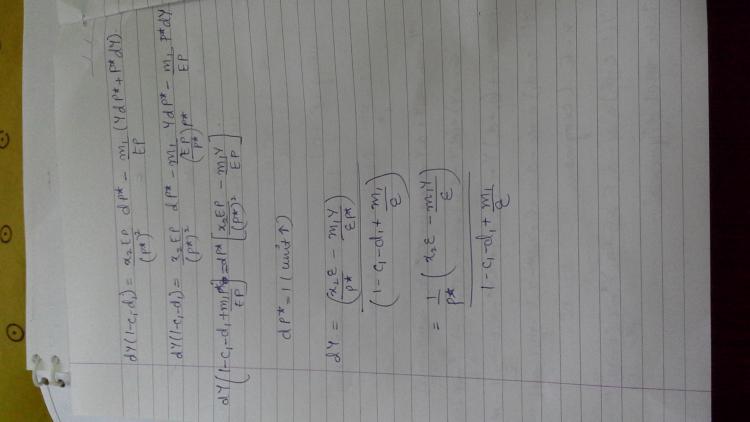 dY(1-c₁-d₁) = x₂EP/(P*)² dP* - m₁/EP (YdP* + P*dY)
dY(1-c₁-d₁) = x₂EP/(P*)² dP* - m₁/(EP/P*)P* YdP* - m₁/EP P*dY
dY(1-c₁-d₁+m₁P*/EP) = dP* [x₂EP/(P*)² - m₁Y/EP]
dP* = 1 (unit ↑)
dY = (x₂ε/P* - m₁Y/εP*) / (1-c₁-d₁+m₁/ε)
= 1/P* (x₂ε - m₁Y/ε) / 1-c₁-d₁+m₁/ε